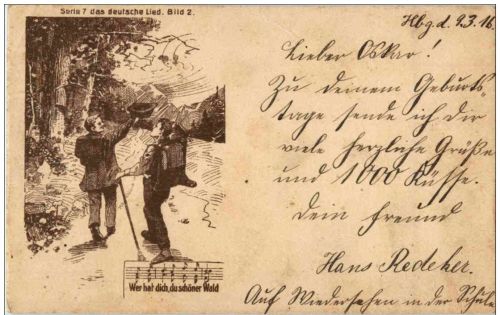 Serie 7 das deutsche Lied. Bild 2.
Hbg d. 9.3.16.
Lieber Oskar!
Zu deinem Geburts-
tage sende ich dir
viele herzliche Grüße
und 1000 Küsse.
Dein Freund
Hans Redeker.
Auf Wiedersehen in der Schule
Wer hat dich, du schöner Wald